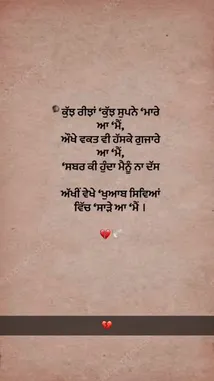 ਕੁੱਝ ਰੀਝਾਂ ‘ਕੁੱਝ ਸੁਪਨੇ ‘ਮਾਰੇ
ਆ ‘ਮੈਂ,
ਔਖੇ ਵਕਤ ਵੀ ਹੱਸਕੇ ਗੁਜਾਰੇ
ਆ ‘ਮੈਂ,
‘ਸਬਰ ਕੀ ਹੁੰਦਾ ਮੈਨੂੰ ਨਾ ਦੱਸ
ਅੱਖੀਂ ਵੇਖੇ ‘ਖੁਆਬ ਸਿਵਿਆਂ
ਵਿੱਚ ‘ਸਾੜੇ ਆ ‘ਮੈਂ ।